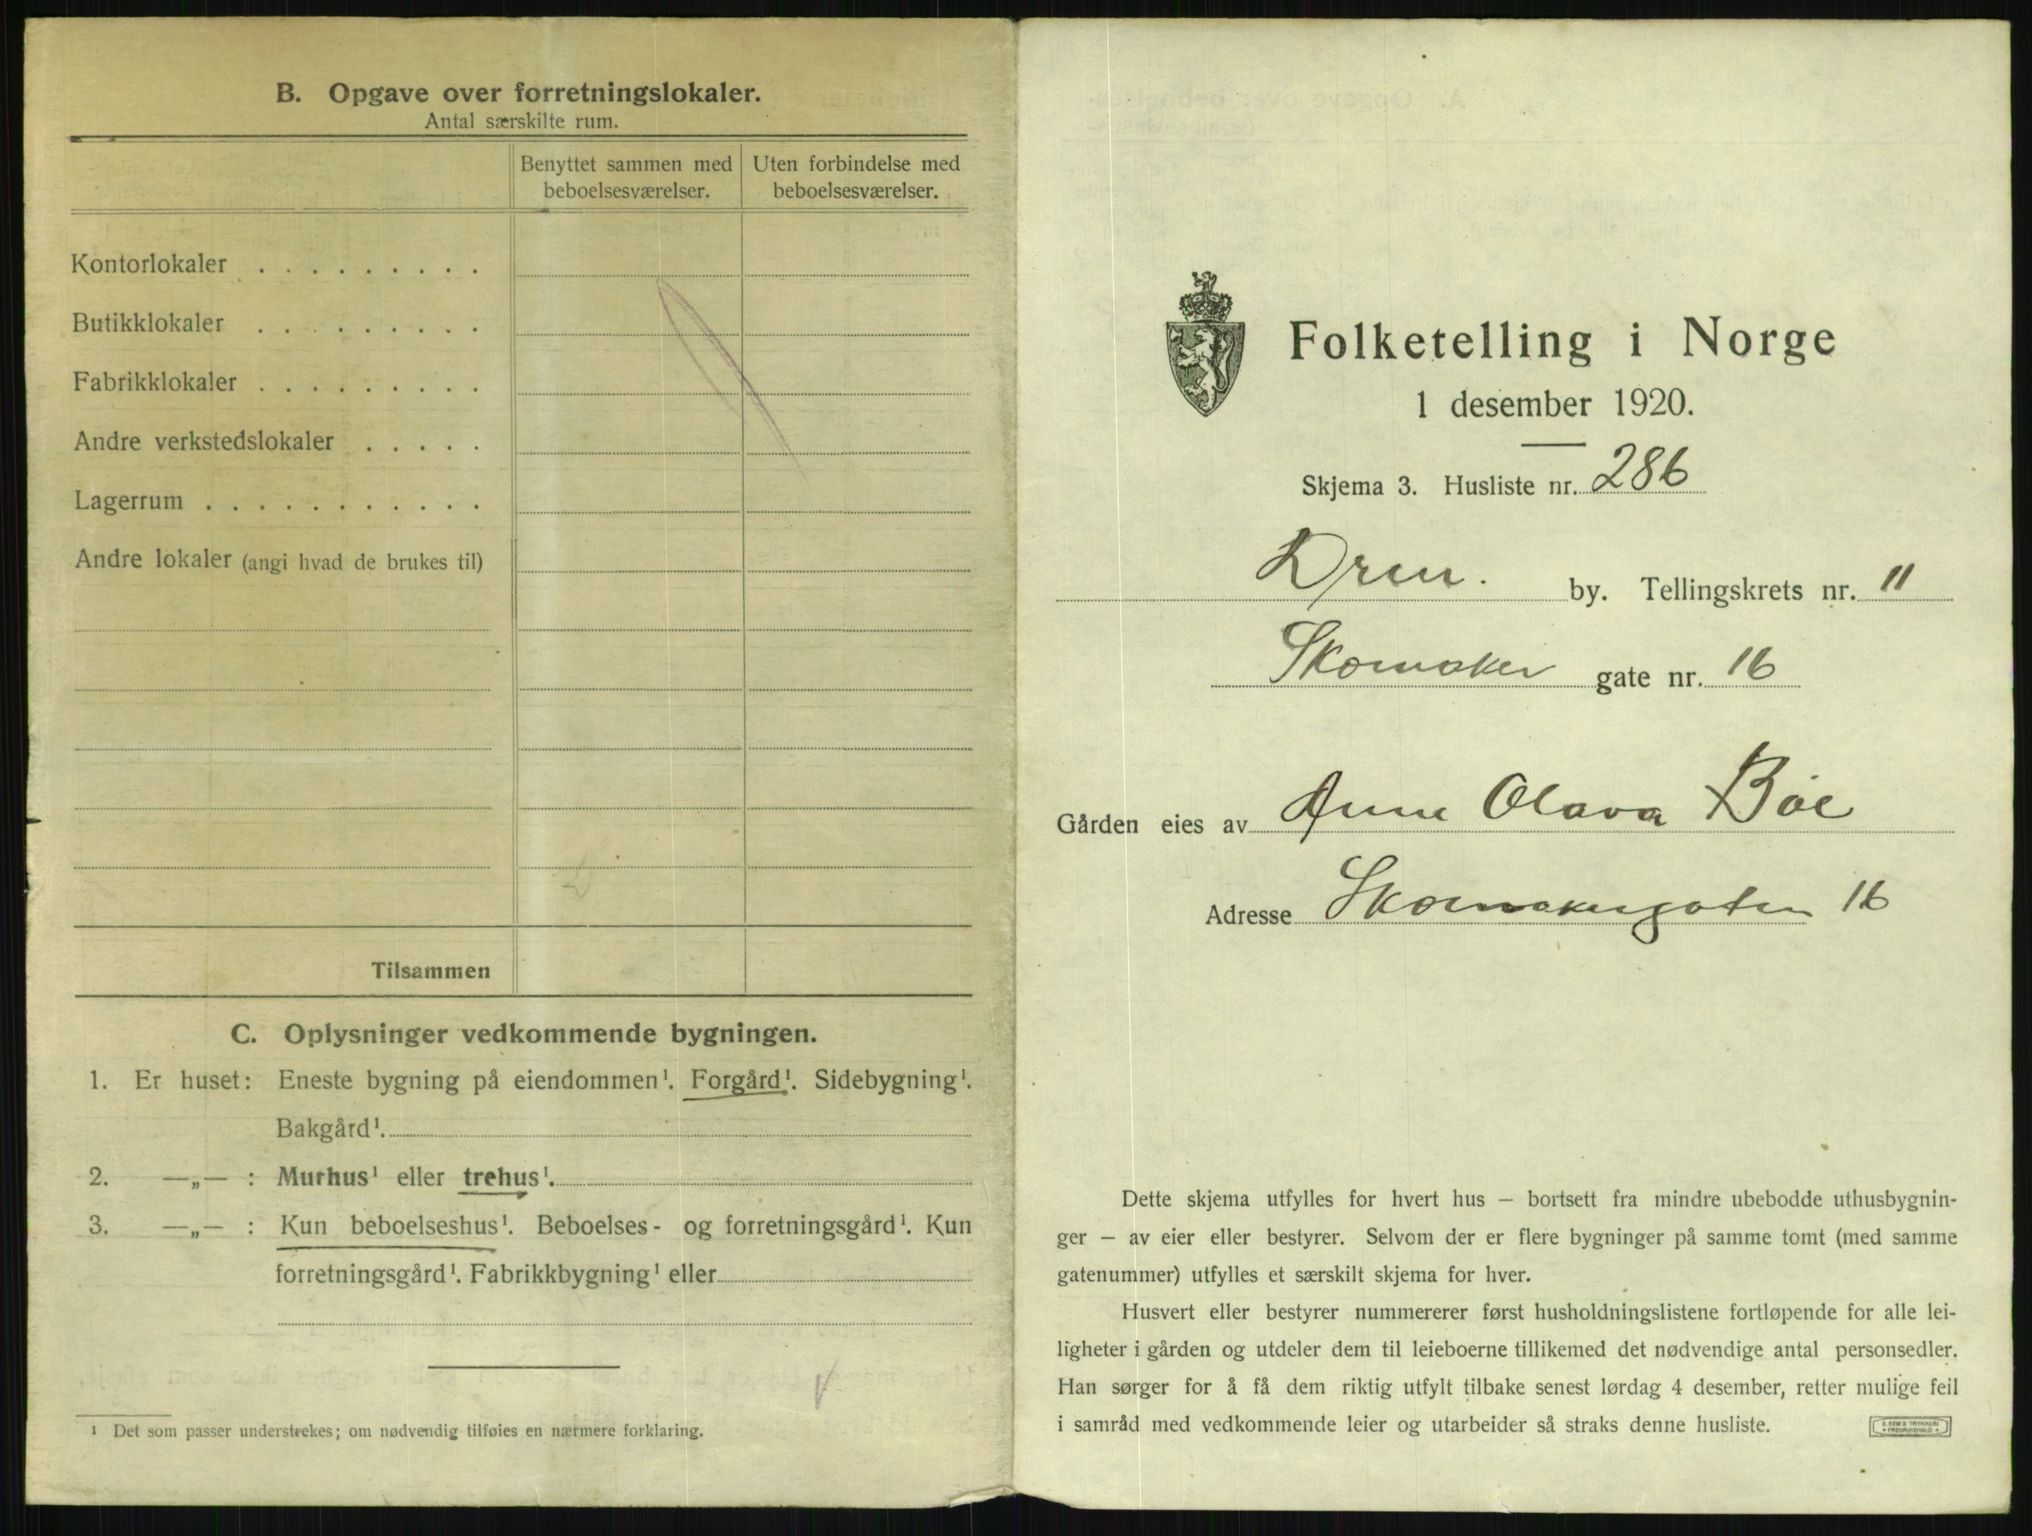 B. Opgave over forretningslokaler.
Antal særskilte rum.
Benyttet sammen med beboelsesværelser.
Uten forbindelse med beboelsesværelser.
Kontorlokaler . . . . . . . . .
Butikklokaler . . . . . . . . .
Fabrikklokaler . . . . . . . . .
Andre verkstedslokaler . . . . .
Lagerrum . . . . . . . . . . .
Andre lokaler (angi hvad de brukes til)
Tilsammen
C. Oplysninger vedkommende bygningen.
1. Er huset: Eneste bygning på eiendommen¹. Forgård¹. Sidebygning¹.
Bakgård¹.
2. —„— : Murhus¹ eller trehus¹.
3. —„— : Kun beboelseshus¹. Beboelses- og forretningsgård¹. Kun
forretningsgård¹. Fabrikkbygning¹ eller
¹ Det som passer understrekes; om nødvendig tilføies en nærmere forklaring.
Folketelling i Norge
1 desember 1920.
Skjema 3. Husliste nr. 286
Drm. by. Tellingskrets nr. 11
Skomaker gate nr. 16
Gården eies av Anne Olava Böe
Adresse Skomakergaten 16
Dette skjema utfylles for hvert hus — bortsett fra mindre ubebodde uthusbygnin-
ger — av eier eller bestyrer. Selvom der er flere bygninger på samme tomt (med samme
gatenummer) utfylles et særskilt skjema for hver.
Husvert eller bestyrer nummererer først husholdningslistene fortløpende for alle lei-
ligheter i gården og utdeler dem til leieboerne tillikemed det nødvendige antal personsedler.
Han sørger for å få dem riktig utfylt tilbake senest lørdag 4 desember, retter mulige feil
i samråd med vedkommende leier og utarbeider så straks denne husliste.
E. SEM'S TRYKKERI
FREDRIKSHALD